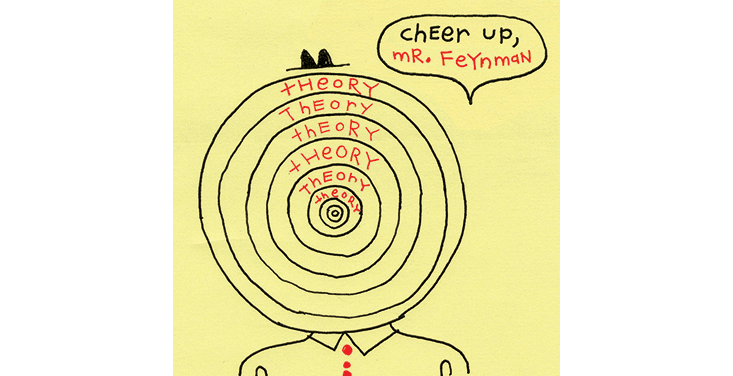 chEEr up,
mR. FeYnmaN
tHeoRY
ThEory
thEoRY
tHeORY
ThEory
theoRY